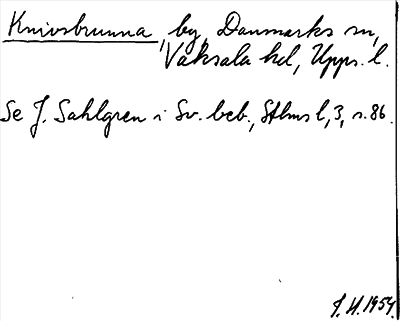 Knivsbrunna, by, Danmarks sn,
Vaksala hd, Upps. l.
Se J. Sahlgren i Sv. beb., Sthms l, 3, s. 86.
J. H. 1954.